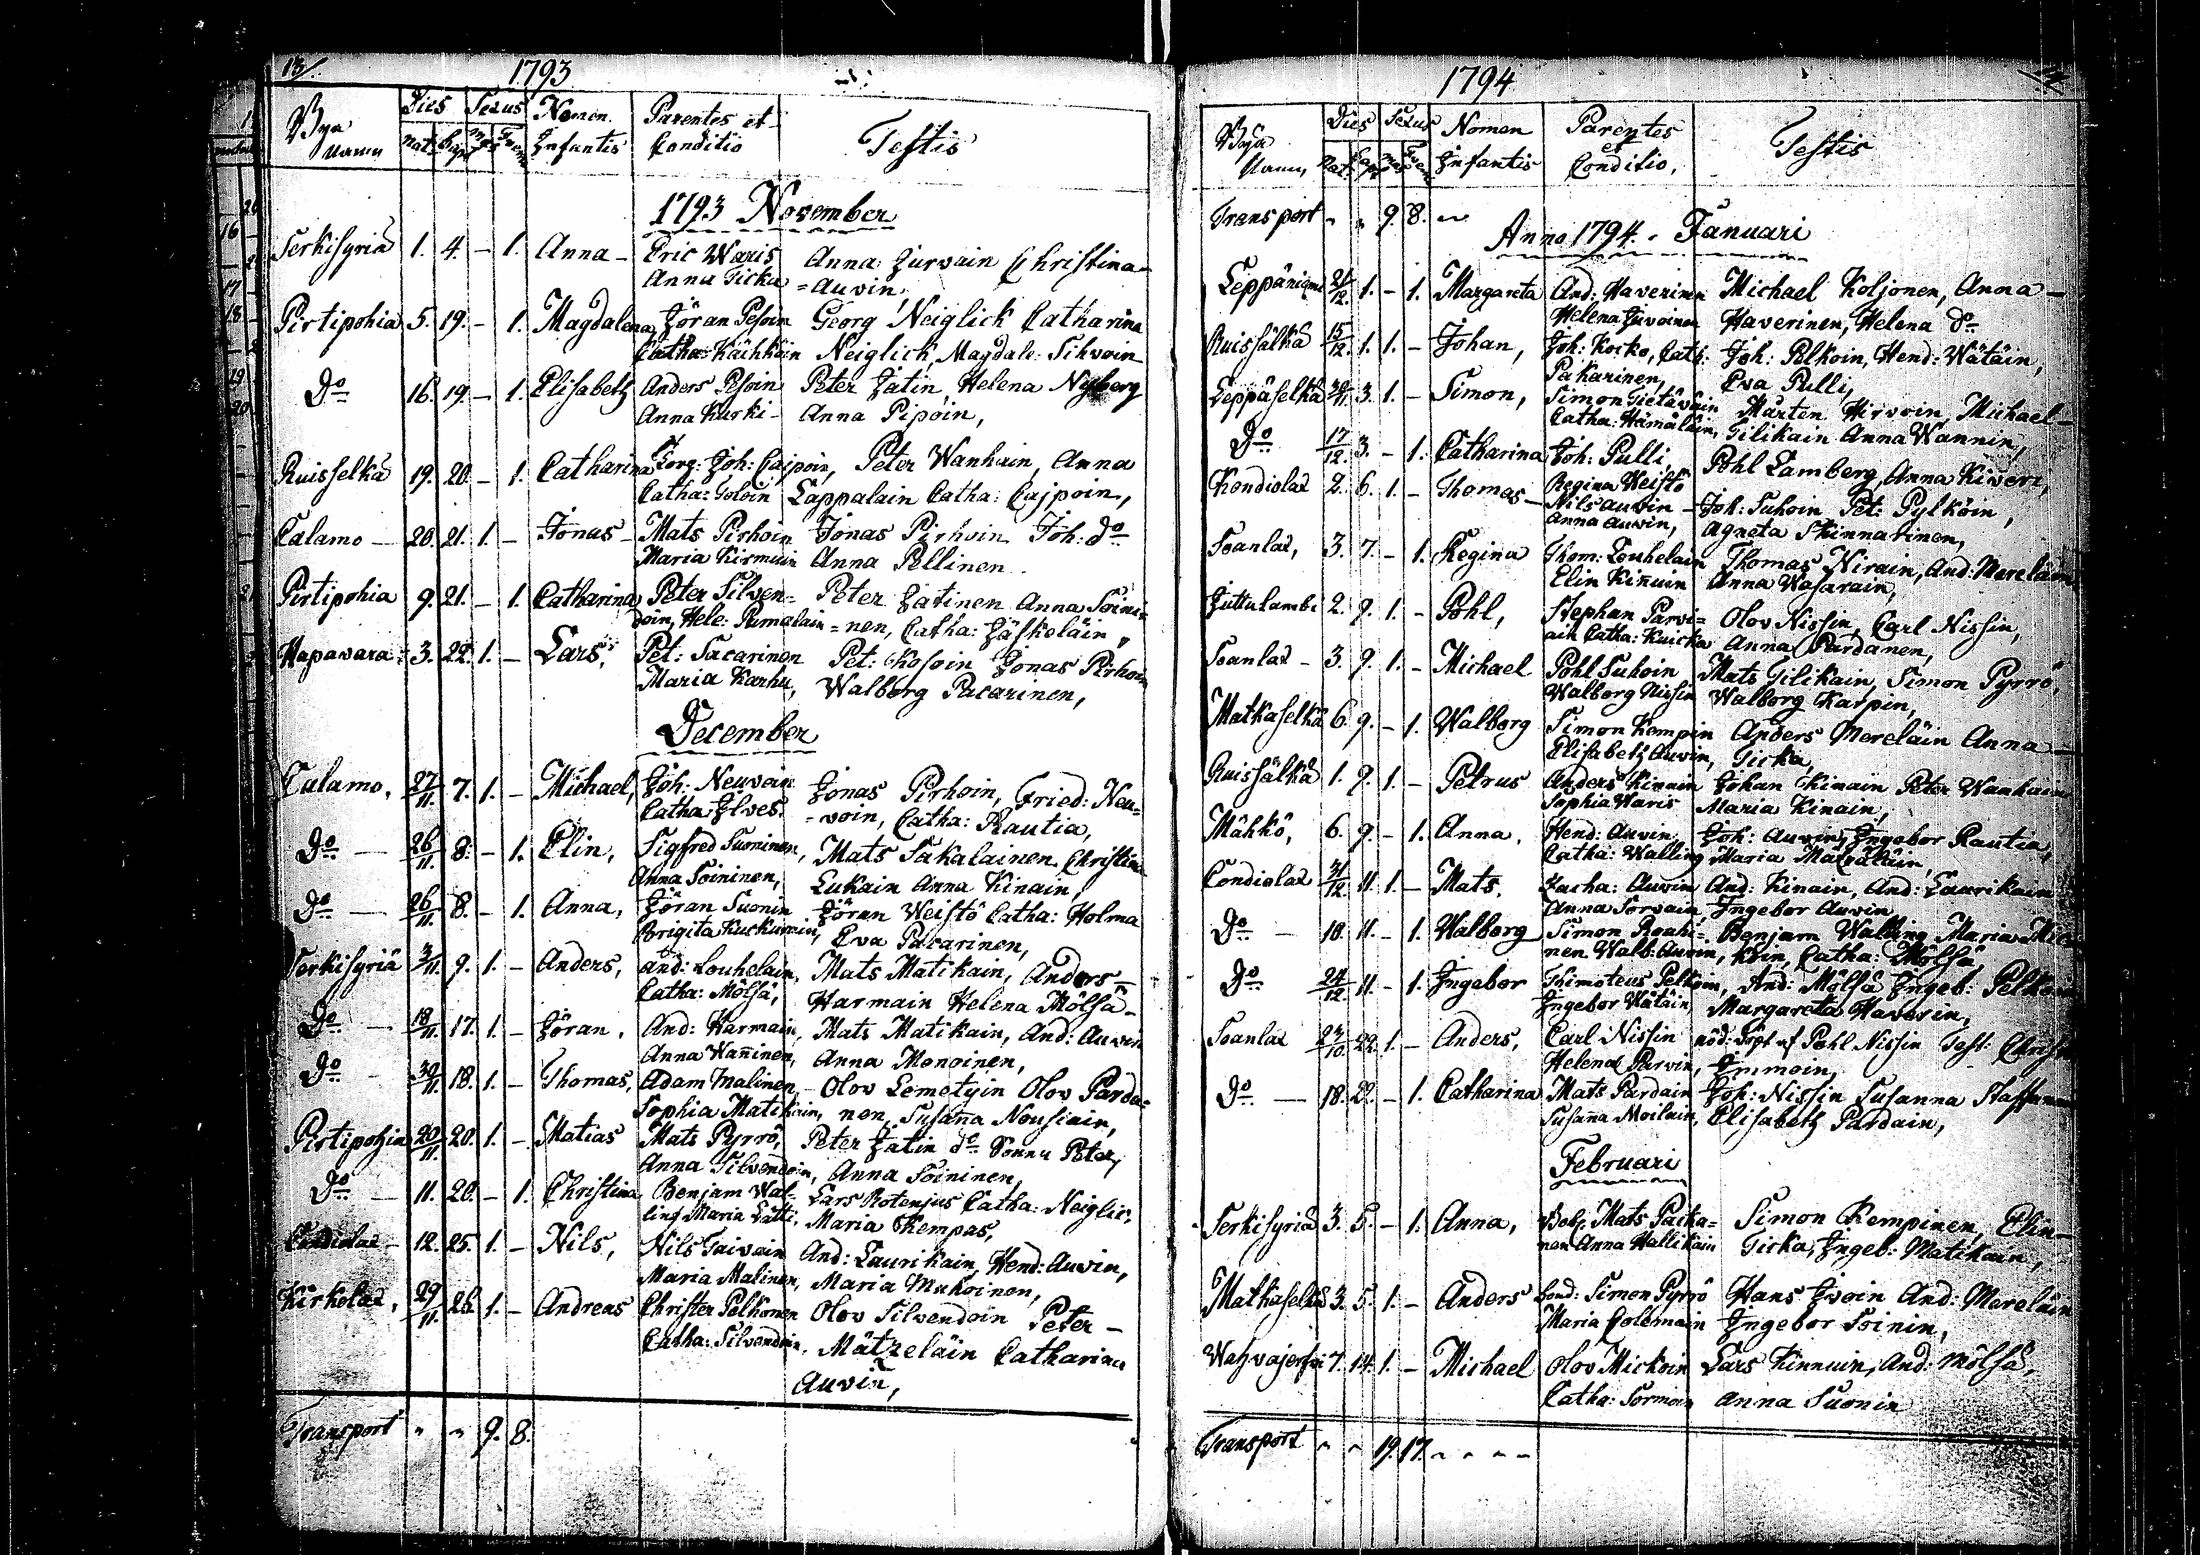 13/.
1793
Bya Namn | Dies Nat: Bapt | Sexus | Nomen Infantis | Parentes et Conditio | Testis
1793 November
Serkisyriä 1. 4. – 1. Anna – Eric Waris Anna Jurvain Christina
Anna Ticka = Auvin,
Pirtipohia 5. 19. – 1. Magdalena Jöran Pesoin Georg Neiglick Catharina
Catha: Kächköin Neiglick, Magdale: Sihvoin
Do 16. 19. – 1. Elisabeth Anders Pesoin Peter Jatin, Helena Nyberg
Anna Kurki – Anna Pipoin,
Ruisselkä 19. 20. – 1. Catharina Joh: Caipoin, Peter Wanhain, Anna
Catha: Lappalain Catha: Cajpoin,
Calamo – 20. 21. 1. – Jonas – Mats Pirhoin Jonas Pirhoin Joh: do
Maria Anna Pellinen
Pirtipohia 9. 21. – 1. Catharina Peter Silven= Peter Jatinen Anna Soini=
doin, Hele: Pumalain =nen, Catha: Jäskeläin,
Hapavara 3. 22. 1. – Lars, Pet: Sacarinen Pet: Kosoin Jonas Pirhoin
Maria Karhu, Walborg Pacarinen,
December
Calamo, 27/11. 7. 1. – Michael, Joh: Neuvoin Jonas Pirhoin, Fried: Neu=
Catha: Ilves =voin, Catha: Rautia,
Do — 26/11. 8. – 1. Elin, Sigfred Suoninen, Mats Sakalainen Christina
Anna Soininen, Lukain Anna Kinain,
Do — 26/11. 8. – 1. Anna, Jöran Suonin Jöran Weistö Catha: Holma
Brigita Eva Pacarinen,
Serkisyriä 3/11. 9. 1. – Anders, And: Louhelain, Mats Matikain, Anders
Catha: Mölsä, Harmain Helena Mölsä –
Do — 18/11. 17. 1. – Jöran, And: Harmain, Mats Matikain, And: Auvin
Anna Wañinen, Anna Monoinen,
Do — 30/11. 18. 1. – Thomas, Adam Malinen, – Olov Lemetyin Olov Parda=
Sophia Matikain, nen, Susaña Nousiain,
Pirtipohia 20/11. 20. 1. – Matias Mats Pyrrö, Peter Jatin do Sonnu Peter,
Anna Silvendoin, Anna Soininen,
Do — 11. 20. – 1. Christina Benjam Wal- Lars Rotenjus Catha: Neiglic,
ling Maria Lätti, Maria Kempas,
Condiolax – 12. 25. 1. – Nils, Nils Taivain And: Laurikain, Hend: Auvin,
Maria Malinen, Maria Mukoinen,
Kirkolax, 29/11. 26. 1. – Andreas Christer Pelkonen Olov Silvendoin Peter –
Catha: Silvendoin, Mätzeläin Catharina
Auvin,
Transport " " 9. 8.
14.
1794
Bya Namn, | Dies Nat. | Sexus | Nomen Infantis | Parentes et Conditio, | Testis
Transport " " 9. 8. "
Anno 1794. Januari
Leppäniemi 21/12. 1. – 1. Margareta And: Haverinen Michael Koljonen, Anna –
Helena Juvoinen Haverinen, Helena do
Ruissälkä 15/12. 1. 1. – Johan, Joh: Kocko, Cath: Joh: Pelkoin, Hend: Wätäin,
Pakarinen, Eva Pulli,
Leppäselkä 3. 1. – Simon, Simon Tietäväin Mårten Hirvoin, Michael
Catha: Hämäläin, Tilikain Anna Wannin,
Do 17/12. 3. – 1. Catharina Joh: Pulli, Pohl Lamberg, Anna Kiveri,
Regina Weistö
Kondiolax 2. 6. 1. – Thomas – Nils Auvin – Joh: Suhoin Pet: Pylköin,
Anna Auvin, Agneta Skinnarinen,
Soanlax, 3. 7. – 1. Regina Thom: Louhelain Thomas Nirain, And: Mereläin
Elin Kiñuin Anna Wasarain,
Juttulambi 2. 9. 1. – Pohl, Stephan Parvi= Olov Nissin, Carl Nissin,
ain Catha: Kuicka Anna Pardanen,
Soanlax – 3. 9. 1. – Michael Pohl Suhoin Mats Tilikain, Simon Pyrrö,
Walborg Nissin Walborg Karpin,
Matkaselkä 6. 9. – 1. Walborg Simon Kempin Anders Mereläin Anna –
Elisabeth Auvin, Ticka,
Ruissälkä 1. 9. 1. – Petrus Anders Kinnain Johan Kinain Peter Wanhain
Sophia Waris Maria Kinain,
Mähkö, 6. 9. – 1. Anna, Hend: Auvin Joh: Auvin, Ingebor Rautia,
Catha: Walling Maria Matzäläin,
Condiolax 31/12. 11. 1. – Mats, Zacha: Auvin And: Kinain, And: Laurikain
Anna Sorvain, Ingebor Auvin
Do — 10. 11. – 1. Walborg Simon Roahi= Benjam Walling Maria Mic
nen Walb: Auvin, köin, Catha: Mölsä
Do 24/12. 11. – 1. Ingebor Thimoteus Pelkoin, And: Mölsä Ingeb: Pelkonen
Ingebor Wätäin, Margareta Haverin,
Soanlax 27/10. 22. 1. – Anders, Carl Nissin nöd: Döpt af Pohl Nissin Test:
Helena Parvin, Immoin,
Do — 18. 22. – 1. Catharina Mats Pardain Joh: Nissin Susanna Staffan
Susaña Moilain, Elisabeth Pardain,
Februari
Serkisyriä 3. 5. – 1. Anna, Mats Packa= Simon Kempinen, Elin
nen Anna Hallikain Ticka, Ingeb: Matikain,
Matkaselkä 3. 5. 1. – Anders Simon Pyrrö Hans Ivoin And: Mereläin
Maria Colemain Ingebor Soinin,
7. 14. 1. – Michael Olov Mickoin Lars Kinnuin, And: Mölsä,
Catha: Sormoin Anna Suonin
Transport " " 19. 17. " " " "